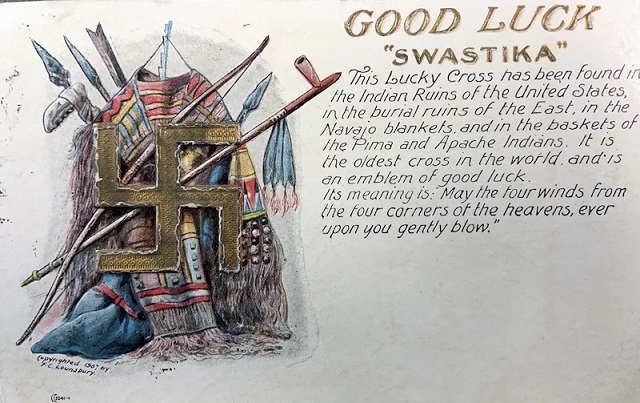 GOOD LUCK
"SWASTIKA"
This Lucky Cross has been found in
the Indian Ruins of the United States,
in the burial ruins of the East, in the
Navajo blankets, and in the baskets of
the Pima and Apache Indians. It is
the oldest cross in the world, and is
an emblem of good luck.
Its meaning is: May the four winds from
the four corners of the heavens, ever
upon you gently blow."
Copyrighted 1907 by
E.C. Lounsbury.